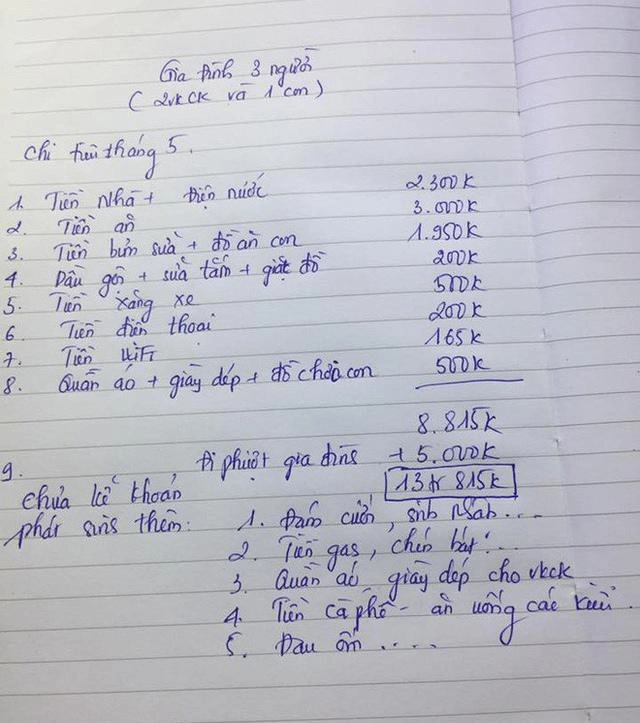 Gia đình 3 người
(2vkck và 1 con)
Chi tiêu tháng 5.
1. Tiền nhà + điện nước 2.300K
2. Tiền ăn 3.000K
3. Tiền bỉm sữa + đồ ăn con 1.950K
4. Dầu gội + sữa tắm + giặt đồ 200K
5. Tiền xăng xe 500K
6. Tiền điện thoại 200K
7. Tiền WiFi 165K
8. Quần áo + giày dép + đồ chơi con 500K
8.815K
9. Đi phượt gia đình + 5.000K
13tr 815K
Chưa kể khoản
phát sinh thêm:
1. Đám cưới, sinh nhật...
2. Tiền gas, chén bát...
3. Quần áo giày dép cho vkck
4. Tiền cà phê - ăn uống các kiểu.
5. Đau ốm ....